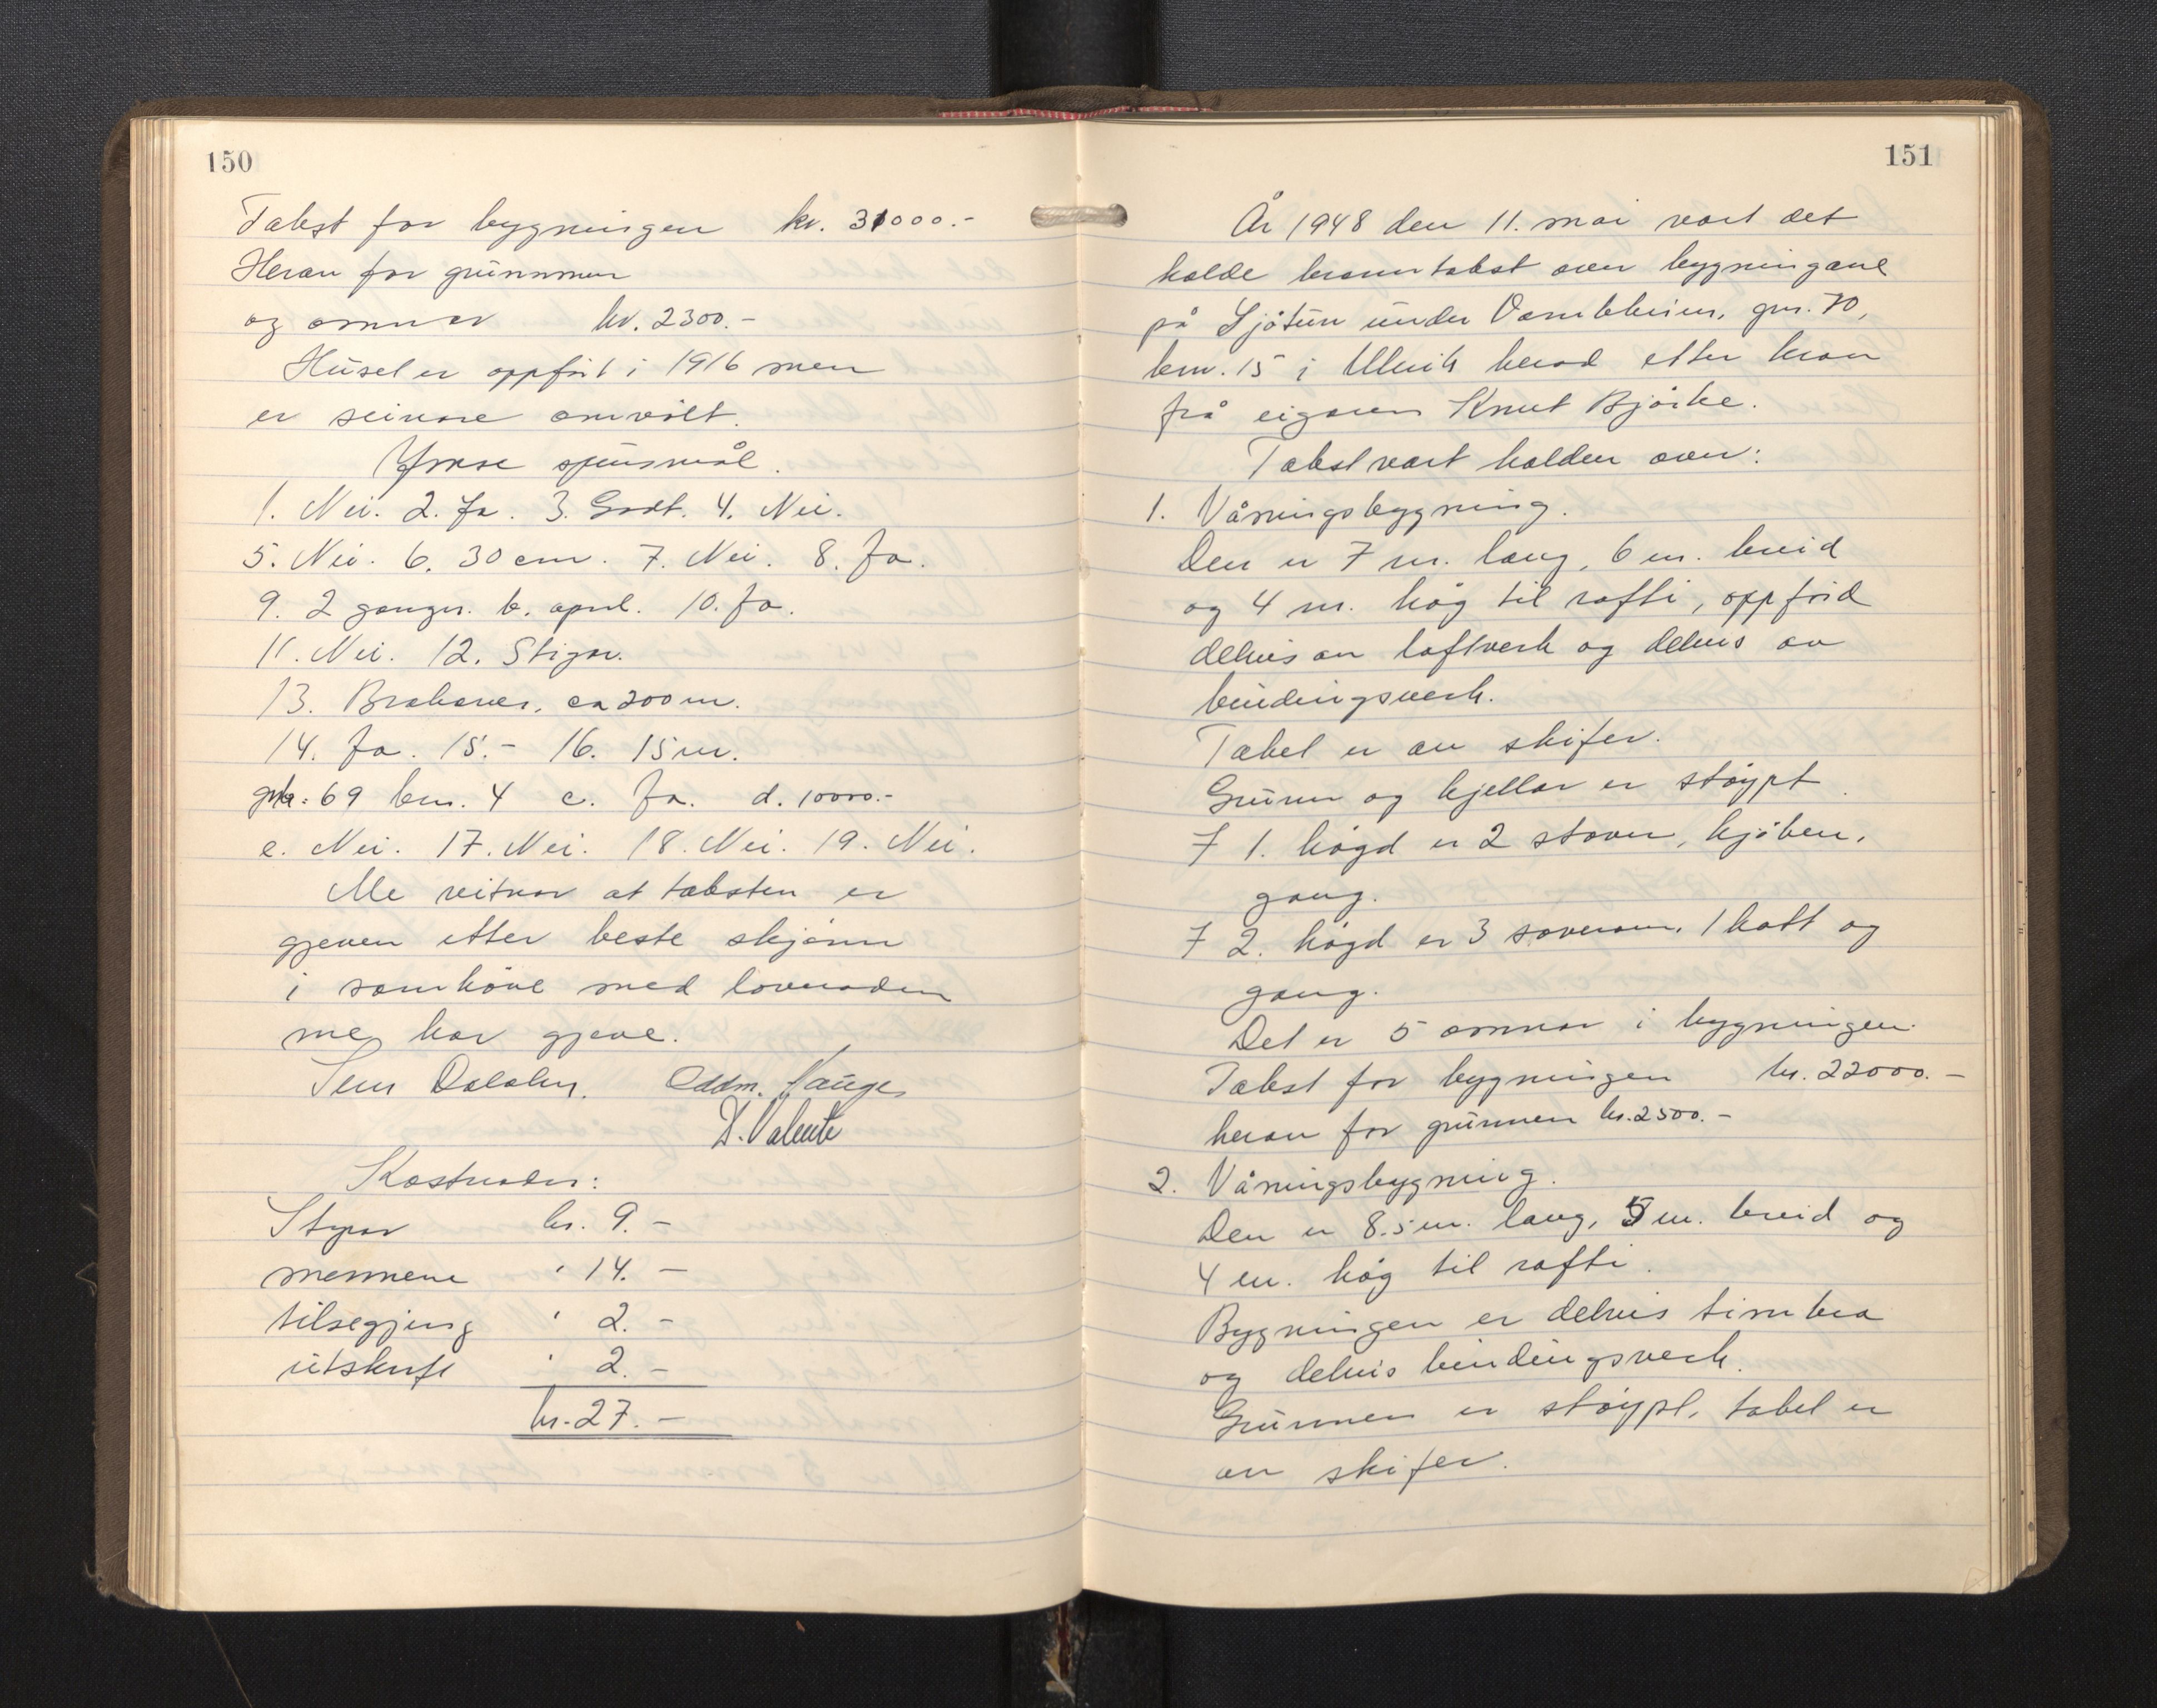 150
Takst for bygningen kr. 31000.-
Herav for grunnmur
og omnar kr. 2300.-
Huset er oppført i 1916 men
er seinare omvølt.
Ymse spursmål.
1. Nei. 2. Ja. 3. Godt. 4. Nei.
5. Nei. 6. 30 cm. 7. Nei. 8. Ja.
9. 2 ganger. b. april. 10. Ja.
11. Nei. 12. Stigar.
13. Brakanes, ca 200 m.
14. Ja. 15.- 16. 15 m.
gnr. 69 bnr. 4 c. Ja. d. 10000.-
e. Nei. 17. Nei. 18. Nei. 19. Nei.
Me vitnar at taksten er
gjeven etter beste skjønn
i samhøve med lovnaden
me har gjeve.
Oddm. Hauge
Kostnader:
Styrar kr. 9.-
mennene " 14.-
tilsegjing " 2.-
utskrift " 2.-
kr. 27.-
151
År 1948 den 11. mai vart det
halde branntakst over bygningane
på Sjøtun under Vambheim, gnr. 70,
bnr. 15 i Ulvik herad etter krav
frå eigaren Knut Bjørke.
Takst vart halden over:
1. Våningsbygning.
Den er 7 m. lang, 6 m. breid
og 4 m. høg til rafti, oppførd
delvis av laftverk og delvis av
bindingsverk.
Taket er av skifer.
Grunn og kjellar er støypt.
I 1. høgd er 2 stover, kjøken,
gang.
I 2. høgd er 3 soverom, 1 kott og
gang.
Det er 5 omnar i bygningen.
Takst for bygningen kr. 22000.-
herav for grunnen kr. 2500.-
2. Våningsbygning.
Den er 8.5 m. lang, 5 m. breid og
4 m. høg til rafti.
Bygningen er delvis timbra
og delvis bindingsverk.
Grunnen er støypt, taket er
av skifer.